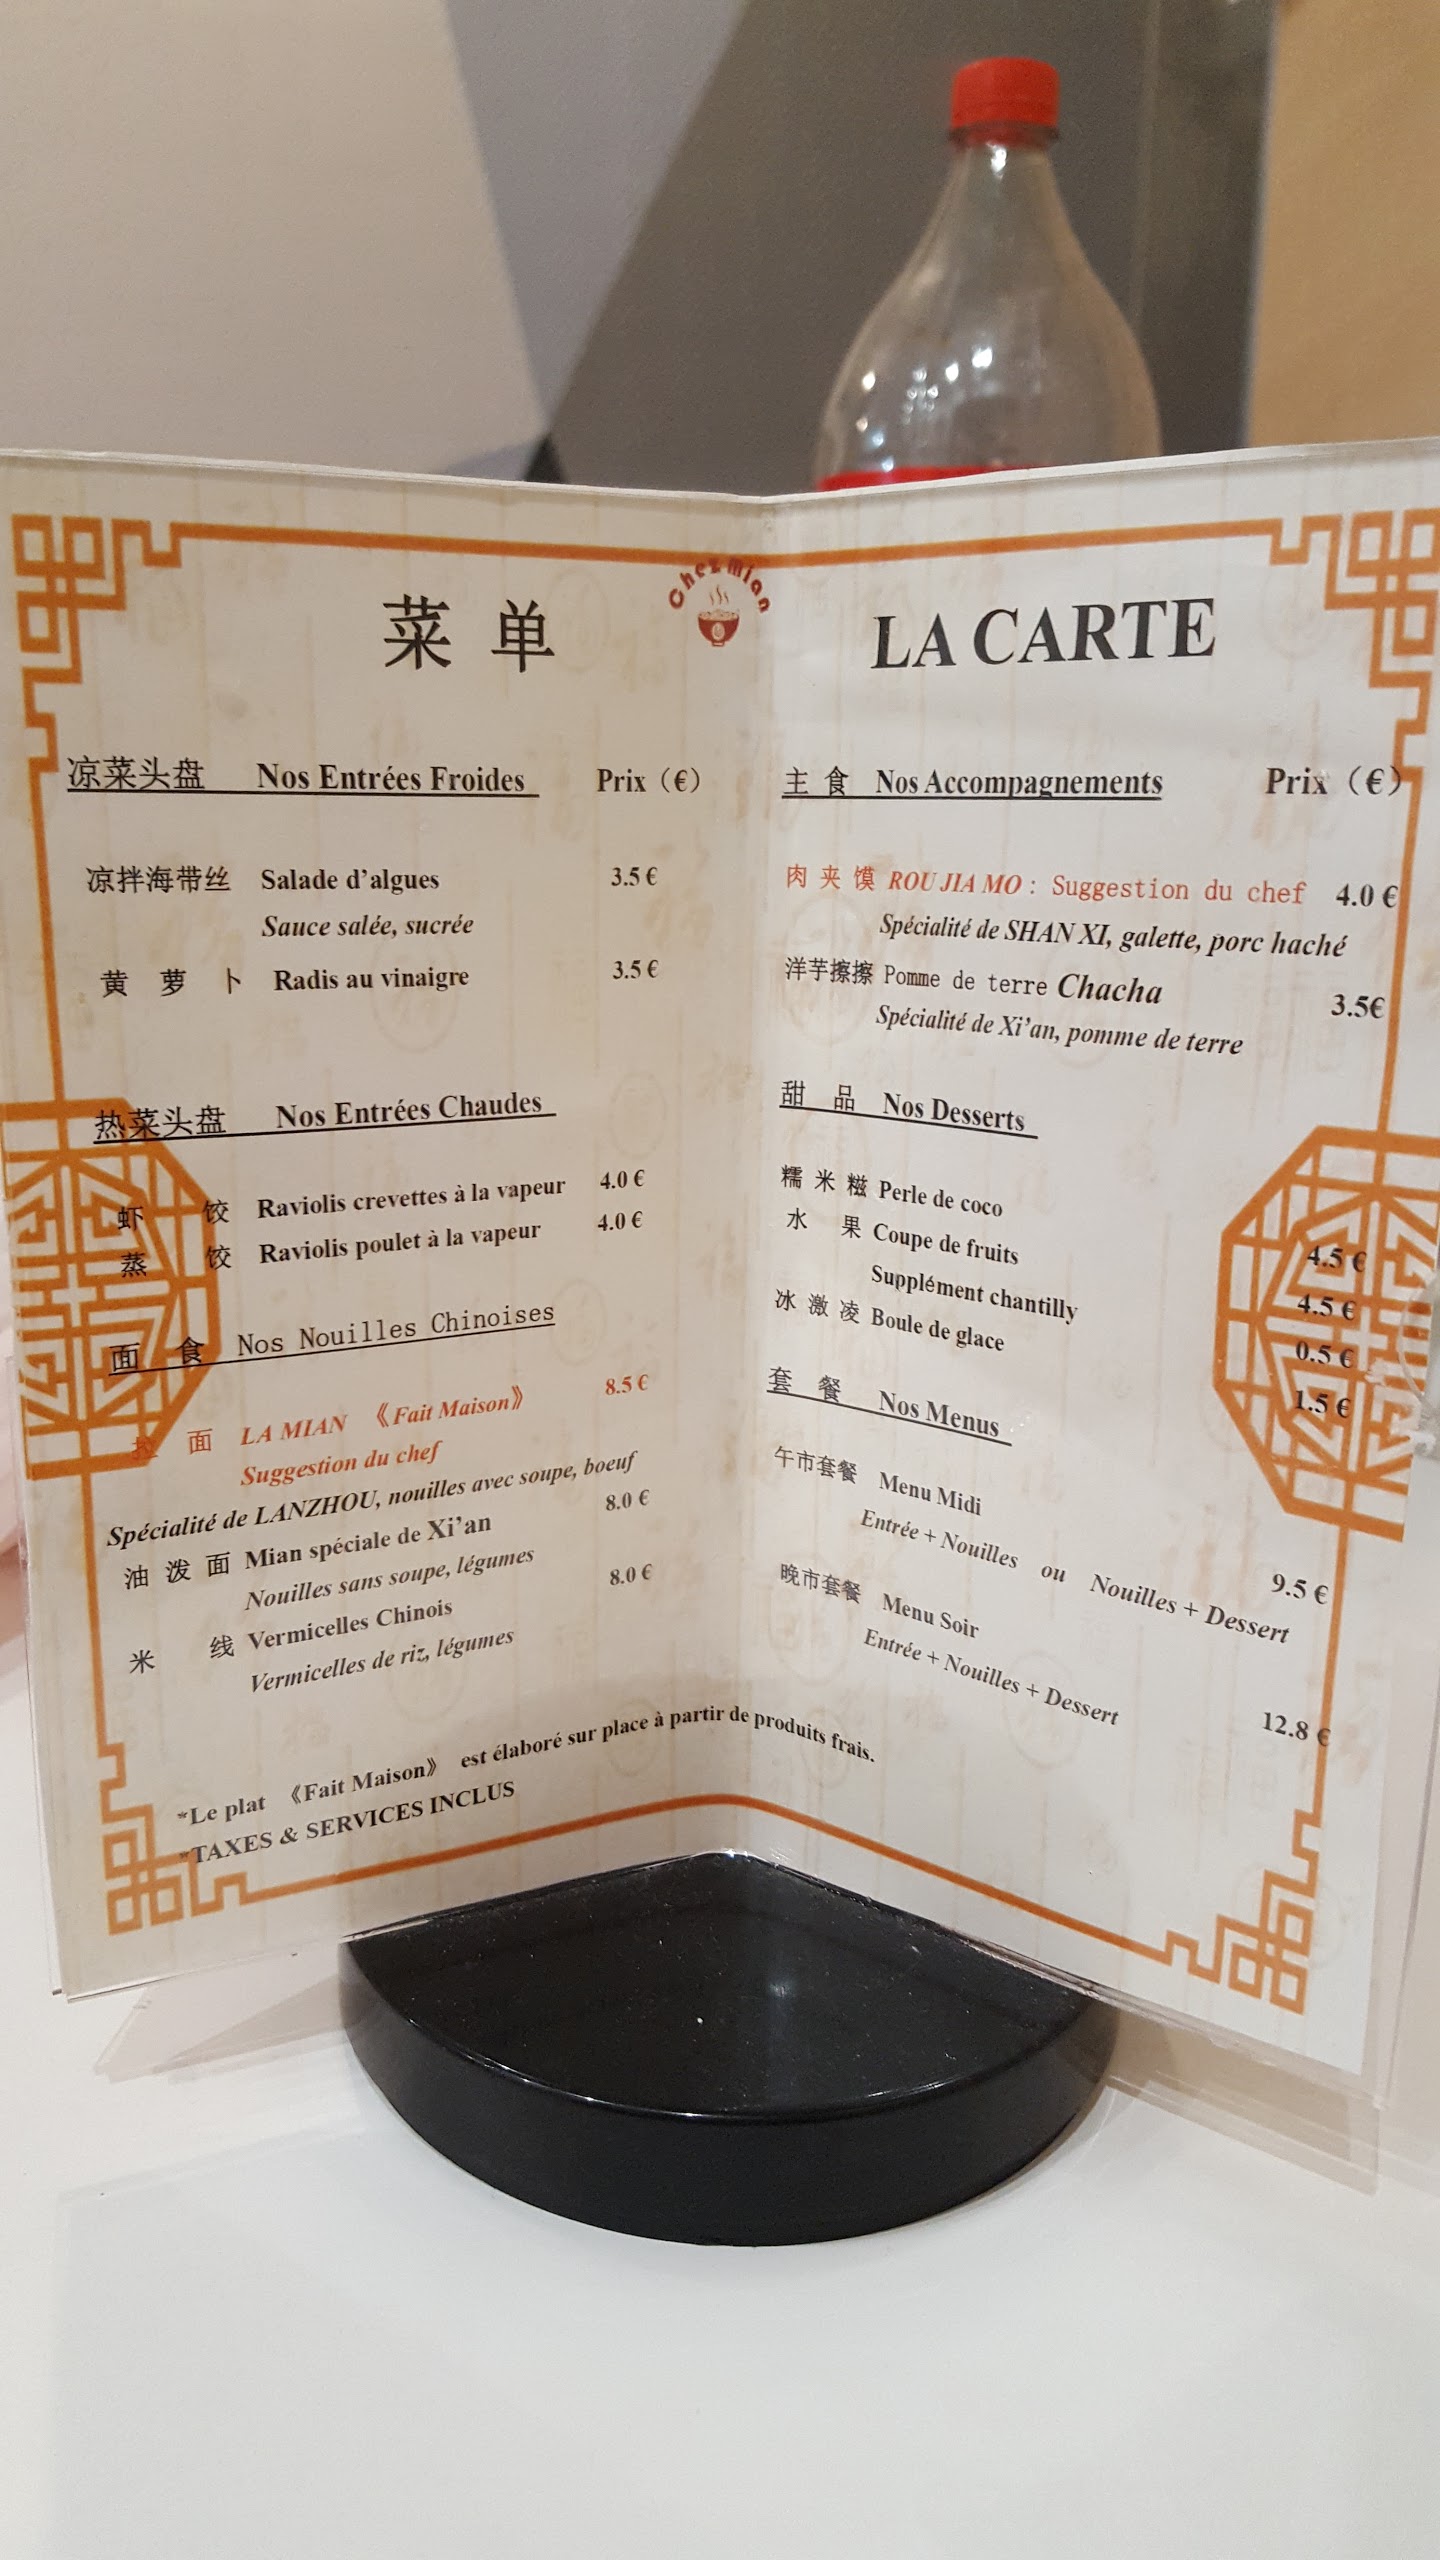 Chez mian
菜 单
凉菜头盘 Nos Entrées Froides Prix（€）
凉拌海带丝 Salade d’algues 3.5 €
Sauce salée, sucrée
黄 萝 卜 Radis au vinaigre 3.5 €
热菜头盘 Nos Entrées Chaudes
虾 饺 Raviolis crevettes à la vapeur 4.0 €
蒸 饺 Raviolis poulet à la vapeur 4.0 €
面 食 Nos Nouilles Chinoises
拉 面 LA MIAN 《Fait Maison》 8.5 €
Suggestion du chef
Spécialité de LANZHOU, nouilles avec soupe, boeuf
油 泼 面 Mian spéciale de Xi’an 8.0 €
Nouilles sans soupe, légumes
米 线 Vermicelles Chinois 8.0 €
Vermicelles de riz, légumes
*Le plat 《Fait Maison》 est élaboré sur place à partir de produits frais.
*TAXES & SERVICES INCLUS
LA CARTE
主 食 Nos Accompagnements Prix（€）
肉 夹 馍 ROU JIA MO : Suggestion du chef 4.0 €
Spécialité de SHAN XI, galette, porc haché
洋芋擦擦 Pomme de terre Chacha 3.5€
Spécialité de Xi’an, pomme de terre
甜 品 Nos Desserts
糯 米 糍 Perle de coco 4.5 €
水 果 Coupe de fruits 4.5 €
Supplément chantilly 0.5 €
冰 激 凌 Boule de glace 1.5 €
套 餐 Nos Menus
午市套餐 Menu Midi 9.5 €
Entrée + Nouilles ou Nouilles + Dessert
晚市套餐 Menu Soir 12.8 €
Entrée + Nouilles + Dessert